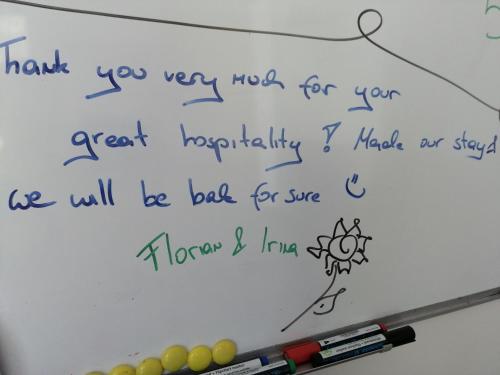 Thank you very much for your
great hospitality! Made our stay!
we will be bak for sure
Florian & Irina
5